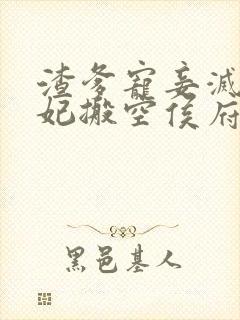 渣爹寵妾滅
妃搬空侯府
黑邑基人